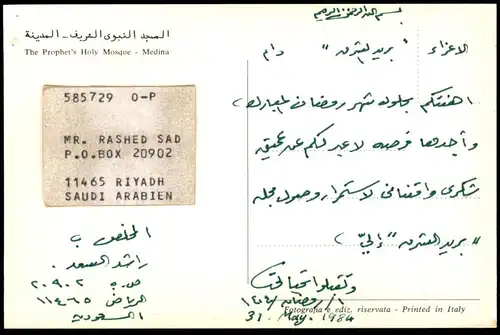 المسجد النبوي الشريف - المدينة
The Prophet's Holy Mosque - Medina
585729 O-P
MR. RASHED SAD
P.O.BOX 20902
11465 RIYADH
SAUDI ARABIEN
المخلص
راشد السعد
ص.ب ٢٠٩٠٢
الرياض ١١٤٦٥
السعودية
بسم الله الرحمن الرحيم
الاعزاء " بريد الشرق " دام
اهنئكم بحلول شهر رمضان المبارك،
وأجدها فرصه لاعبر لكم عن عميق
شكري لاستمرار وصول مجله
"بريد الشرق" إليّ،
وتقبلوا تحياتي
١/ رمضان / ١٤٠٤
31. May. 1984
Fotografia e ediz. riservata - Printed in Italy